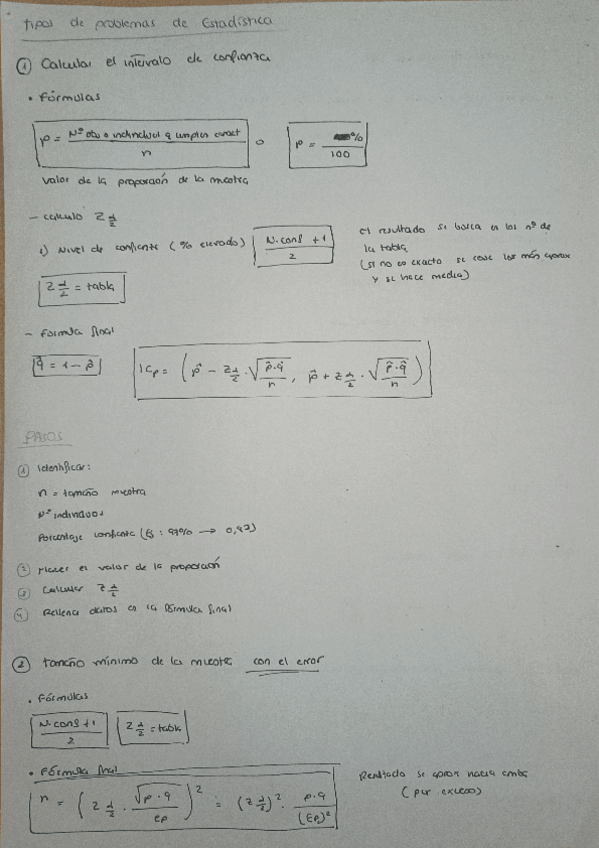 Tipos de problemas de Estadística
① Calcular el intervalo de confianza
• Fórmulas
p = Nº obs o individuos q cumplen caract / n o p = % / 100
Valor de la proporción de la muestra
– Cálculo Z α/2
1) Nivel de confianza (% elevado) N.conf + 1 / 2
El resultado se busca en los nº de
la tabla
(si no es exacto se coge los más aprox
y se hace media)
Z α/2 = tabla
– Fórmula final
q̂ = 1 - p̂ ICp = ( p̂ - Z α/2 · √(p̂·q̂ / n) , p̂ + Z α/2 · √(p̂·q̂ / n) )
PASOS
① Identificar:
n = tamaño muestra
Nº individuos
Porcentaje confianza (Ej: 97% → 0,97)
② Hacer el valor de la proporción
③ Calcular Z α/2
④ Rellena datos en la fórmula final
② Tamaño mínimo de la muestra con el error
• Fórmulas
N.conf + 1 / 2 Z α/2 = tabla
• Fórmula final
n = ( Z α/2 · √(p·q) / Ep )² = (Z α/2)² · p·q / (Ep)²
Resultado se aprox hacia arriba
(por exceso)